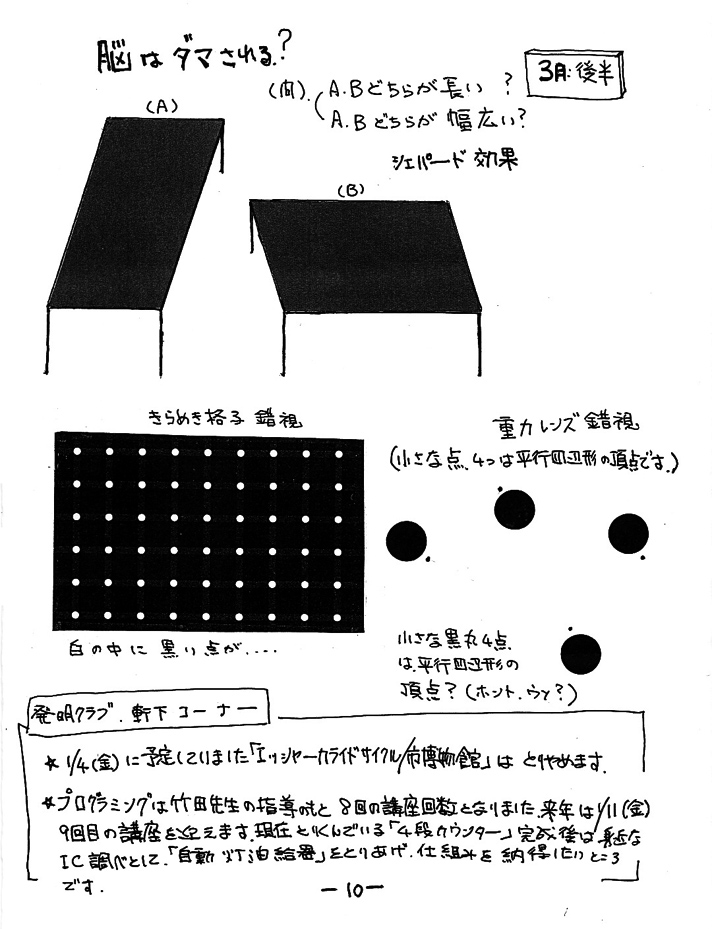 脳はダマされる?
3月:後半
(問).(A.Bどちらが長い?
A.Bどちらが幅広い?
シェパード効果
(A)
(B)
きらめき格子錯視
白の中に黒い点が....
重力レンズ錯視
(小さな点、4つは平行四辺形の頂点です.)
小さな黒丸4点
は平行四辺形の
頂点?(ホント.ウソ?)
発明クラブ.軒下コーナー
★ 1/4(金)に予定していました「エッシャーカライドサイクル/市博物館」は とりやめます.
★プログラミングは竹田先生の指導のもと 8回の講座回数となりました.来年は1/11(金)
9回目の講座を迎えます.現在とりくんでいる「4段カウンター」完成後は身近な
IC調べとして、「自動灯油給器」をとりあげ.仕組みを納得したいところ
です.
-10-